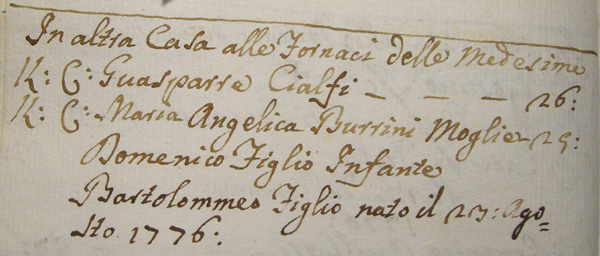 In altra Casa alle Fornaci delle Medesime
K: C: Guasparre Cialfi — — — 26:
K: C: Maria Angelica Burrini Moglie - 25:
Domenico Figlio Infante
Bartolommeo Figlio nato il 27: Ago=
sto 1776: